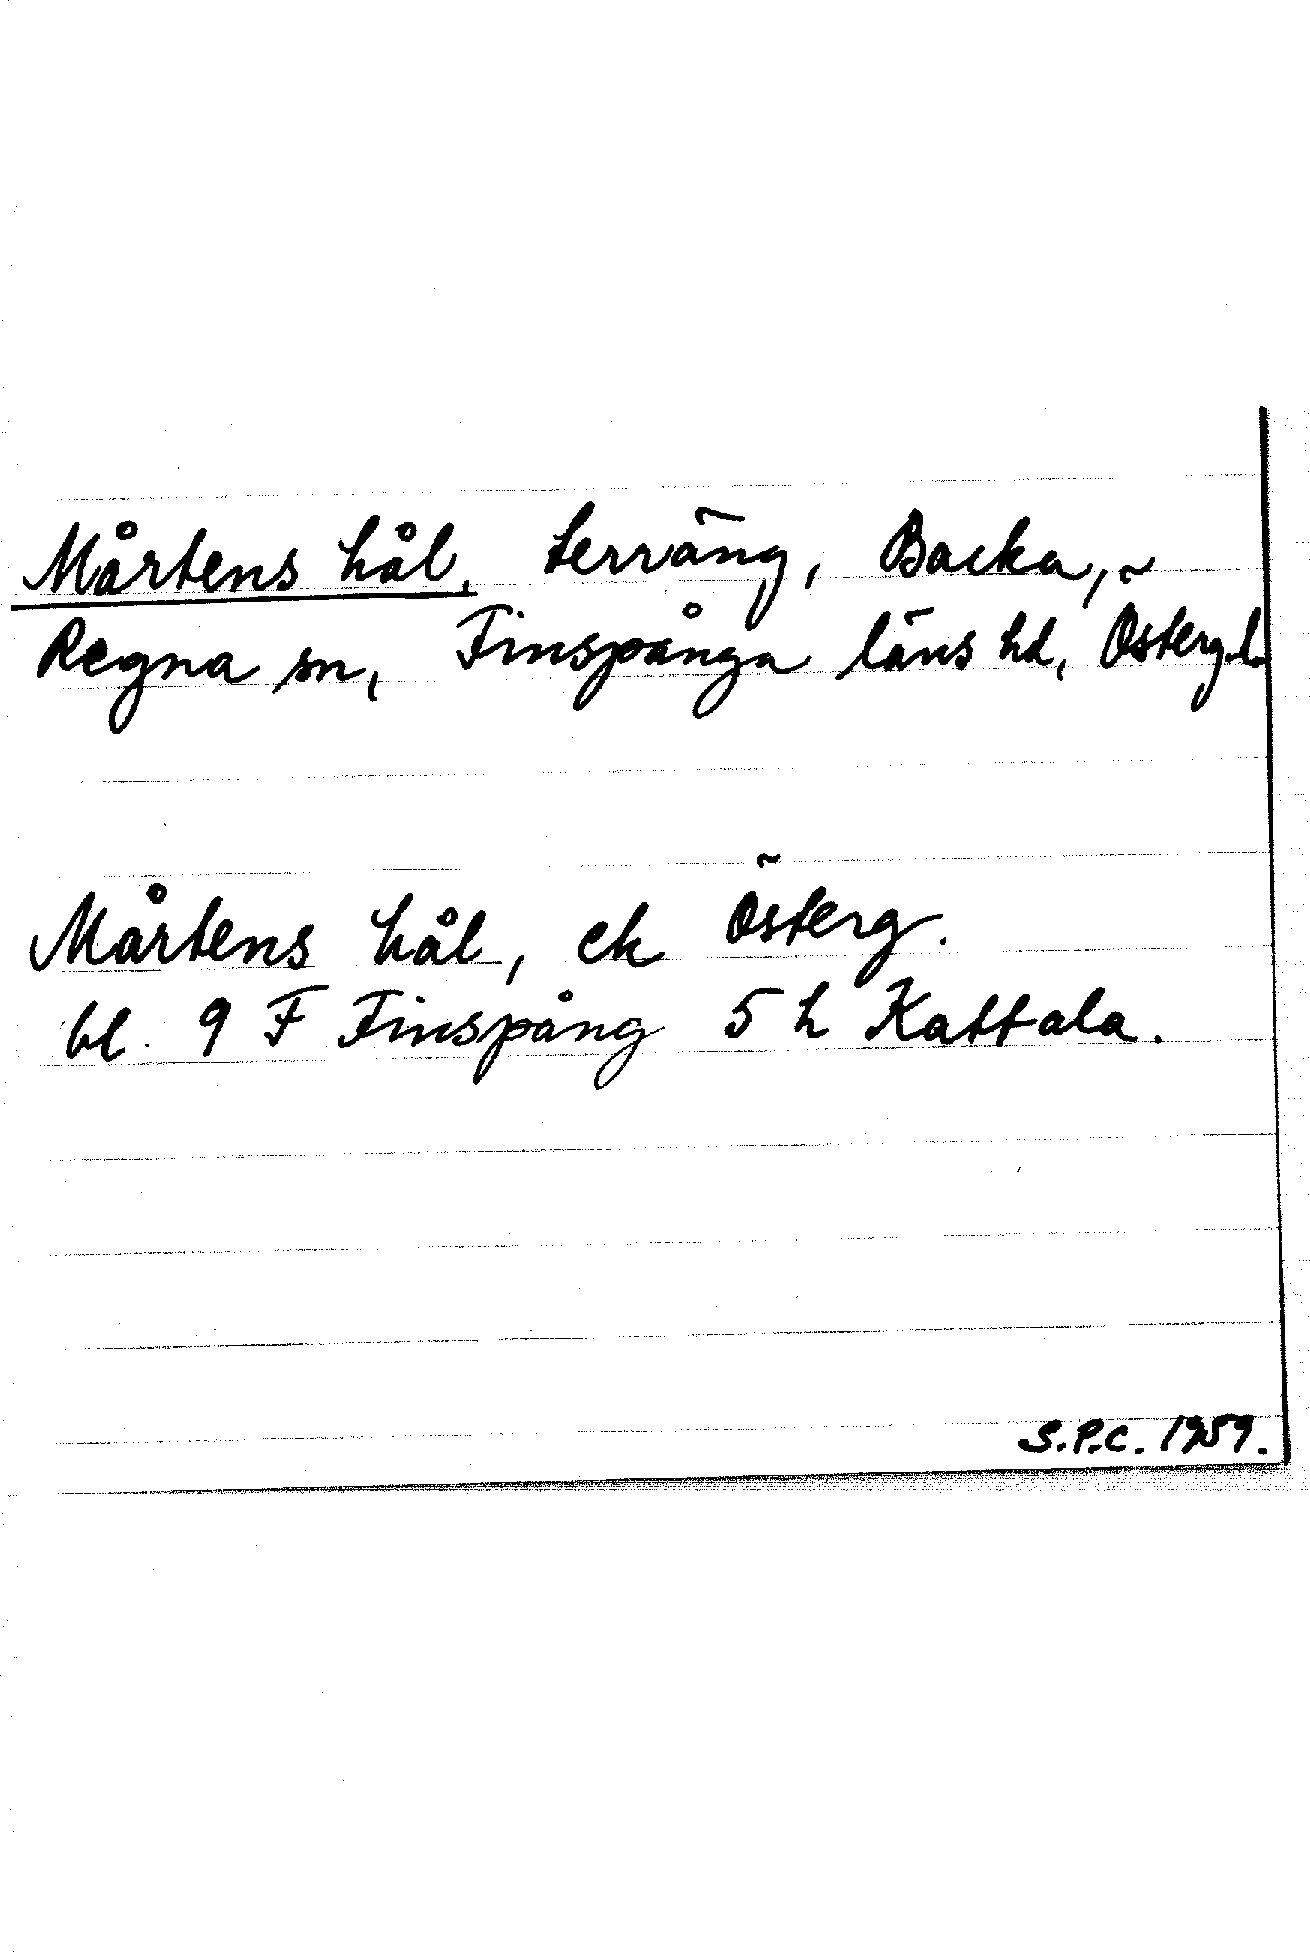 Mårtens hål, terräng, Backa,
Regna sn, Finspånga läns hd, Österg.l.
Mårtens hål, ek Österg.
bl. 9 F Finspång 5 h Kattala.
S.P.C. 1959.